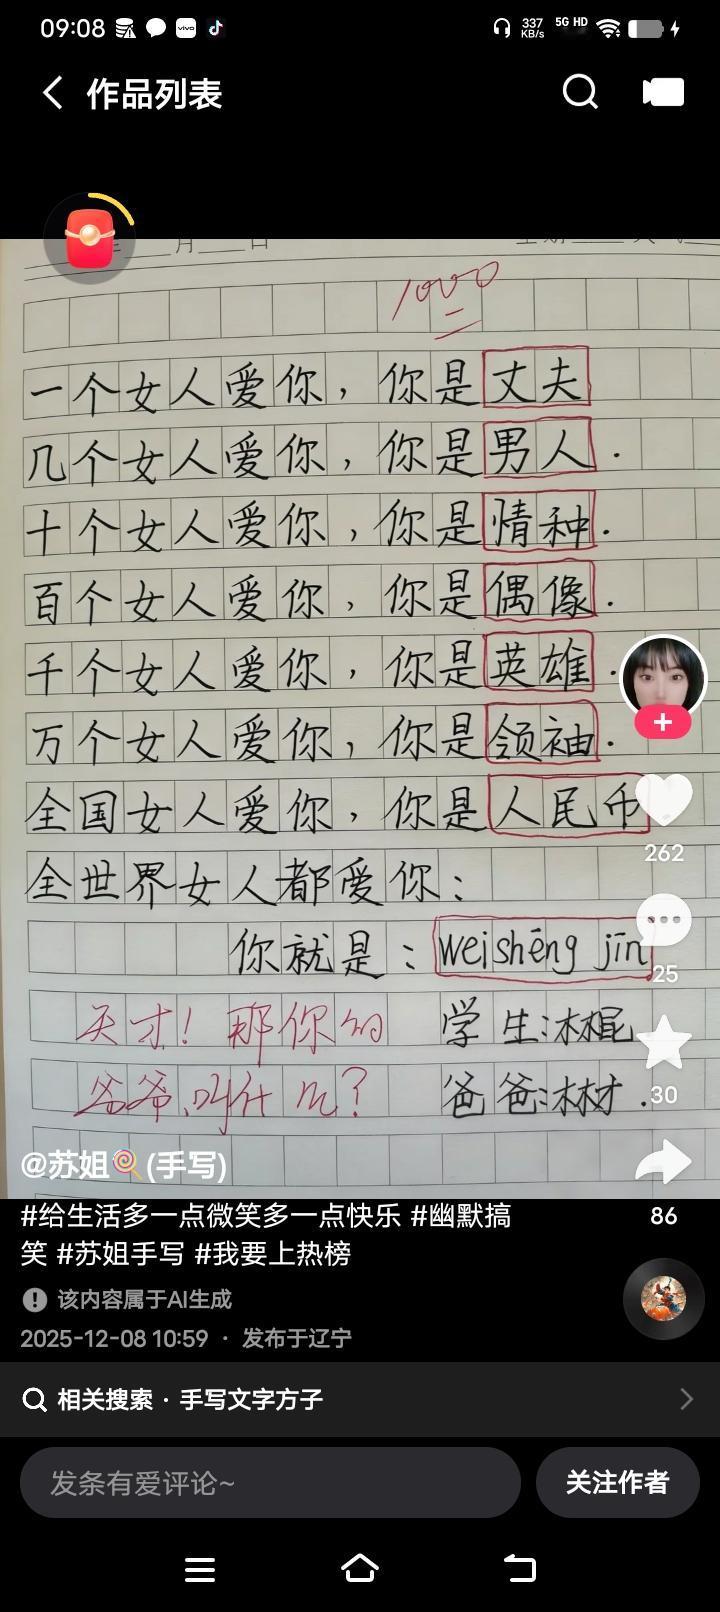 09:08
vivo
337 KB/s
5G HD
作品列表
月 日
1000
一个女人爱你，你是丈夫
几个女人爱你，你是男人.
十个女人爱你，你是情种.
百个女人爱你，你是偶像.
千个女人爱你，你是英雄.
万个女人爱你，你是领袖.
全国女人爱你，你是人民币
全世界女人都爱你：
你就是：weishēng jīn
天才！那你的
爸爸叫什么？
学生：木棍
爸爸：木材.
262
25
30
86
@苏姐🍭(手写)
#给生活多一点微笑多一点快乐 #幽默搞
笑 #苏姐手写 #我要上热榜
该内容属于AI生成
2025-12-08 10:59 · 发布于辽宁
相关搜索 · 手写文字方子
发条有爱评论~
关注作者